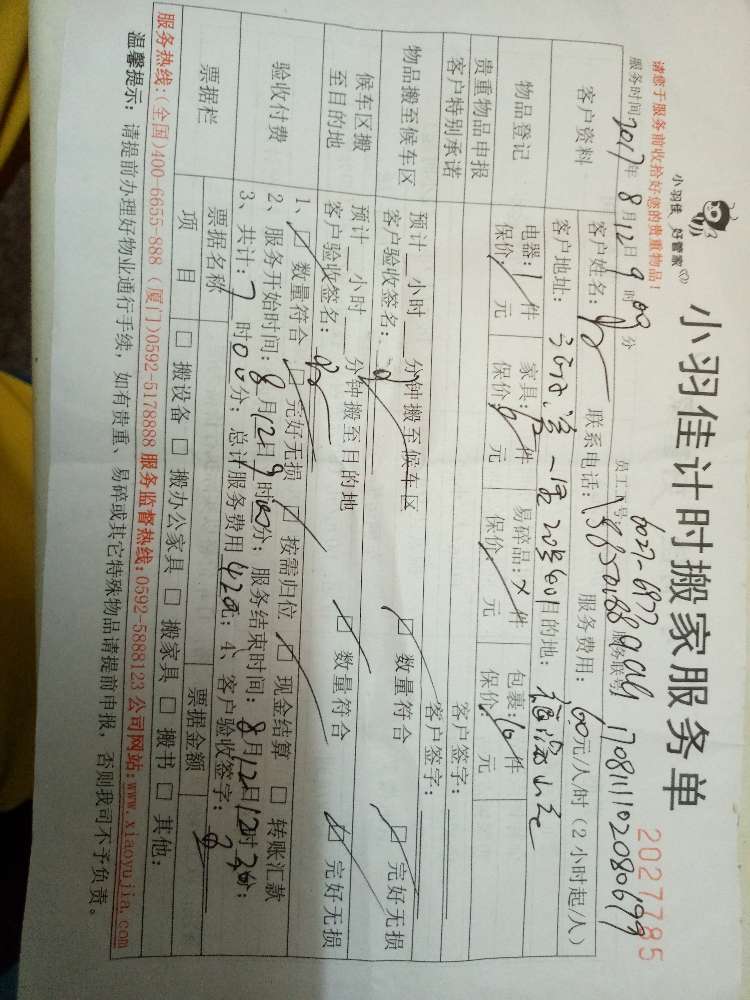 请您于服务前收拾好您的贵重物品!
小羽佳 好管家
小羽佳计时搬家服务单
2027785
服务时间: 2017年 8月 12日 9时 09分 员工工号: 6027-6977 服务联号: 170811102080699
客户资料
客户姓名: 联系电话: 服务费用: 60元/人/时(2小时起/人)
客户地址: 目的地:
物品登记
电器: 1件 家具: 件 易碎品: 件 包裹: 10件
保价 元 保价 元 保价 元 保价 元
贵重物品申报 客户签字:
客户特别承诺 客户签字:
物品搬至候车区
预计 小时 分钟搬至候车区 □ 数量符合 □ 完好无损
客户验收签名:
候车区搬至目的地
预计 小时 分钟搬至目的地 □ 数量符合 □ 完好无损
客户验收签名:
验收付费
1、□ 数量符合 □ 完好无损 □ 按需归位 □ 现金结算 □ 转账汇款
2、服务开始时间: 8月12日9时00分; 服务结束时间: 8月12日12时30分;
3、共计: 7时00分; 总计服务费用 420元; 4、客户验收签字:
票据栏
票据名称 票据金额
项 目 □ 搬设备 □ 搬办公家具 □ 搬家具 □ 搬书 □ 其他:
服务热线:(全国)400-6655-888 (厦门)0592-5178888 服务监督热线:0592-5888123 公司网站:www.xiaoyujia.com
温馨提示: 请提前办理好物业通行手续, 如有贵重、易碎或其它特殊物品请提前申报, 否则我司不予负责。